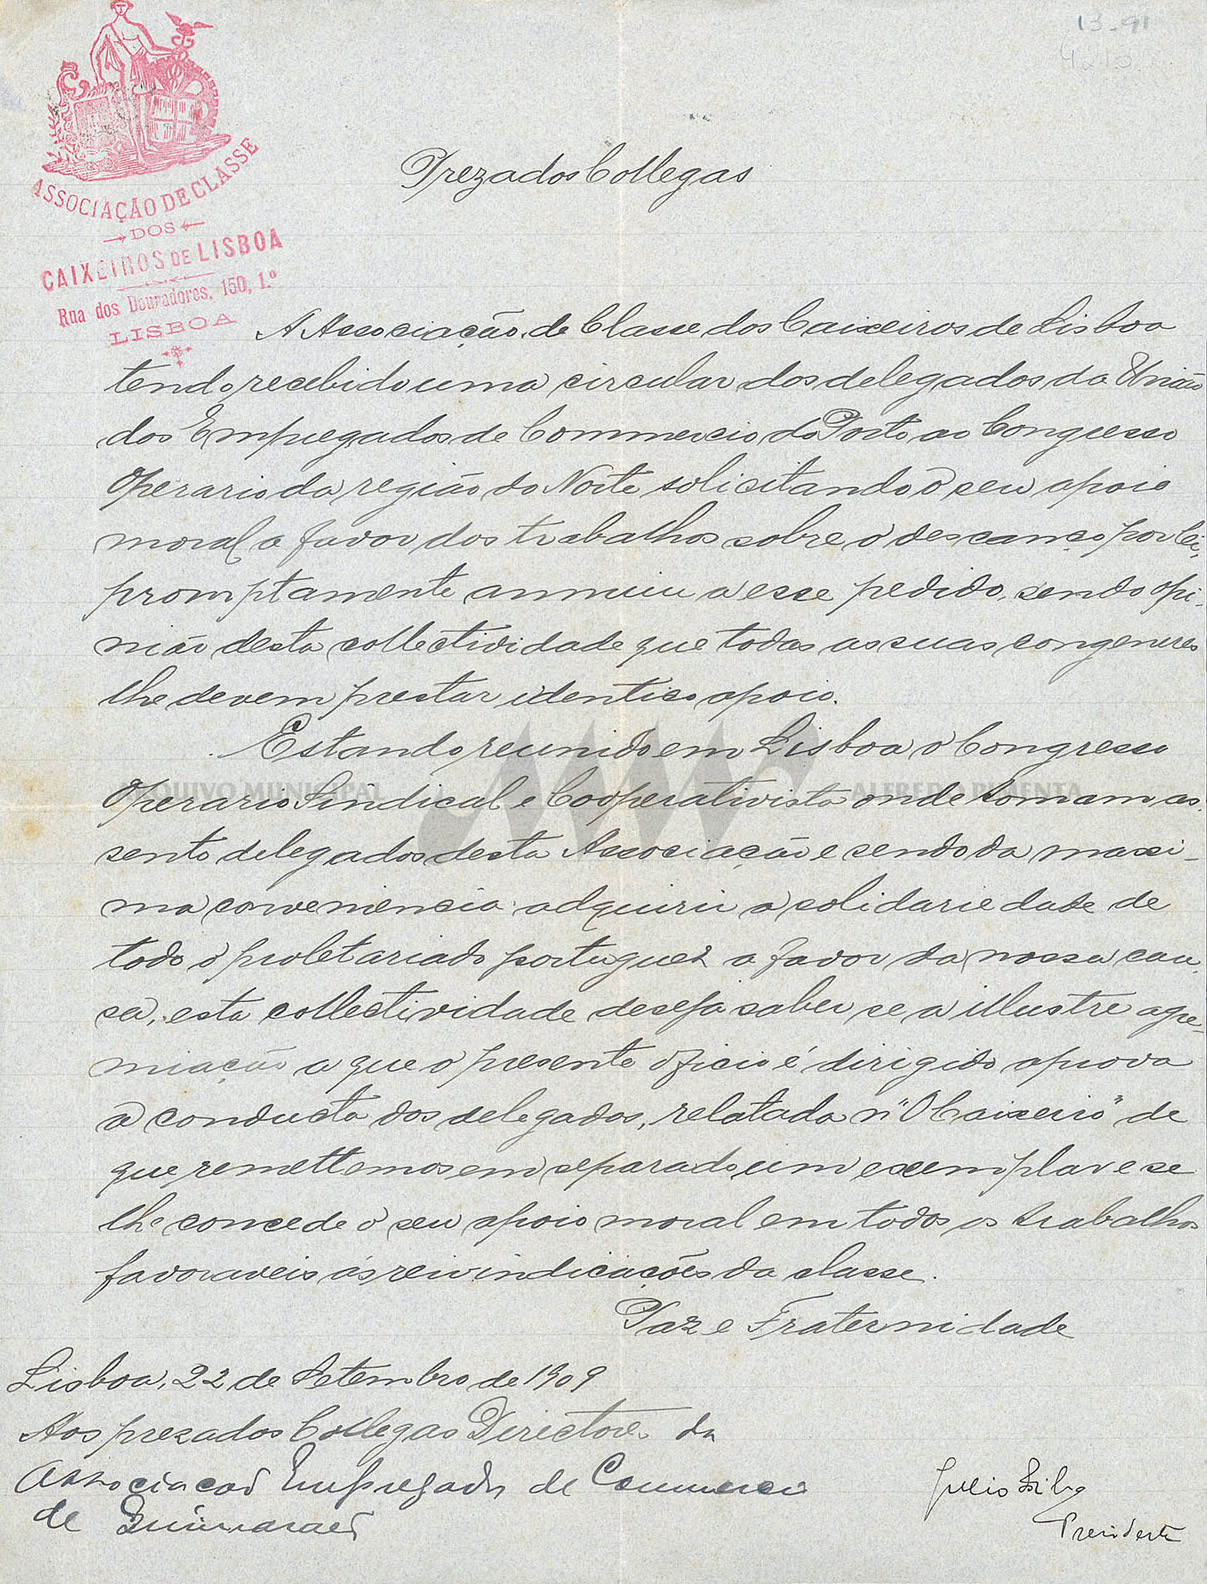 13-91
ASSOCIAÇÃO DE CLASSE
DOS
CAIXEIROS DE LISBOA
Rua dos Douradores, 150, 1.º
LISBOA
Prezados Collegas
A Associação de Classe dos Caixeiros de Lisboa
tendo recebido uma circular dos delegados da União
dos Empregados de Commercio do Porto ao Congresso
Operario da região do Norte solicitando o seu apoio
moral a favor dos trabalhos sobre o descanço por lei,
promptamente annuiu a esse pedido, sendo opi-
nião desta collectividade que todas as suas congeneres
lhe devem prestar identico apoio.
Estando reunido em Lisboa o Congresso
Operario Sindical e Cooperativista onde tomam as-
sento delegados desta Associação e sendo da maxi-
ma conveniencia adquirir a solidariedade de
todo o proletariado portuguez a favor da nossa cau-
sa, esta collectividade deseja saber se a illustre agre-
miação a que o presente oficio é dirigido aprova
a conducta dos delegados, relatada n'"O Caixeiro" de
que remettemos em separado um exemplar e se
lhe concede o seu apoio moral em todos os trabalhos
favoraveis ás reivindicações da classe.
Paz e Fraternidade
Lisboa, 22 de Setembro de 1909
Aos prezados Collegas Directores da
Associacao Empregados de Commercio
de Guimaraes
Julio Silva
Presidente
ARQUIVO MUNICIPAL ALFREDO PIMENTA